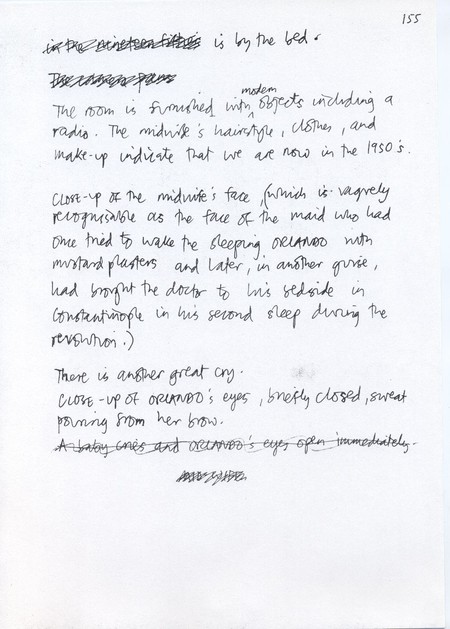 155
in the nineteen fifties is by the bed.
The room is furnished with modern objects including a
radio. The midwife's hairstyle, clothes, and
make-up indicate that we are now in the 1950's.
CLOSE-UP of the midwife's face, (which is vaguely
recognisable as the face of the maid who had
once tried to wake the sleeping ORLANDO with
mustard plasters and later, in another guise,
had brought the doctor to his bedside in
Constantinople in his second sleep during the
revolution.)
There is another great cry.
CLOSE-UP of ORLANDO's eyes, briefly closed, sweat
pouring from her brow.
A baby cries and ORLANDO's eyes open immediately.